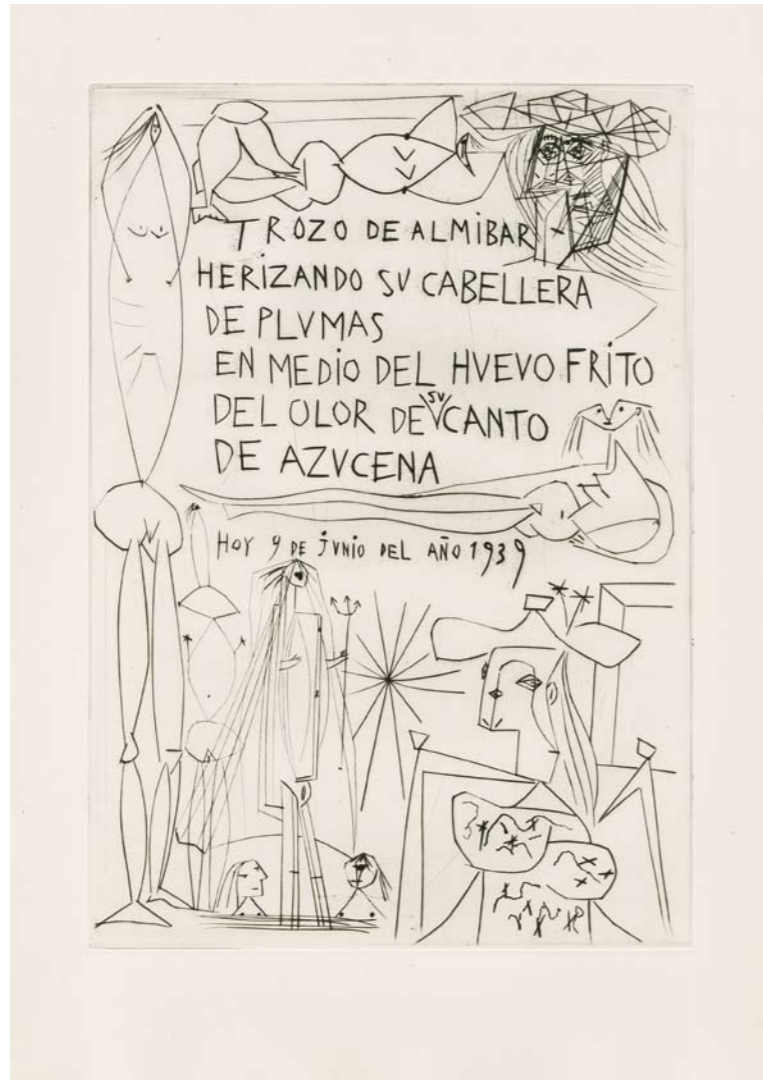 TROZO DE ALMIBAR
HERIZANDO SV CABELLERA
DE PLVMAS
EN MEDIO DEL HVEVO FRITO
DEL OLOR DE SV CANTO
DE AZVCENA
HOY 9 DE JVNIO DEL AÑO 1939